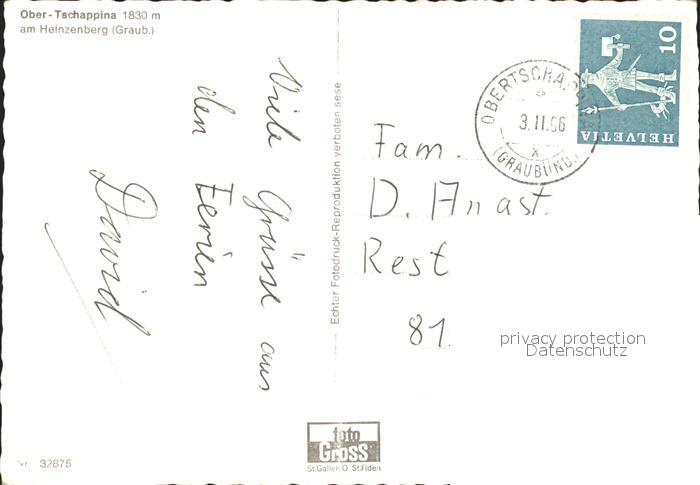 Ober-Tschappina 1830 m
am Heinzenberg (Graub.)
Viele Grüsse aus
den Ferien
David
Echter Fotodruck-Reproduktion verboten sese
10
HELVETIA
3.II.66
(GRAUBÜND.)
Fam.
D. Anast.
Rest
81.
privacy protection
Datenschutz
foto
Gross
St.Gallen O St.Fiden
Nr. 32875